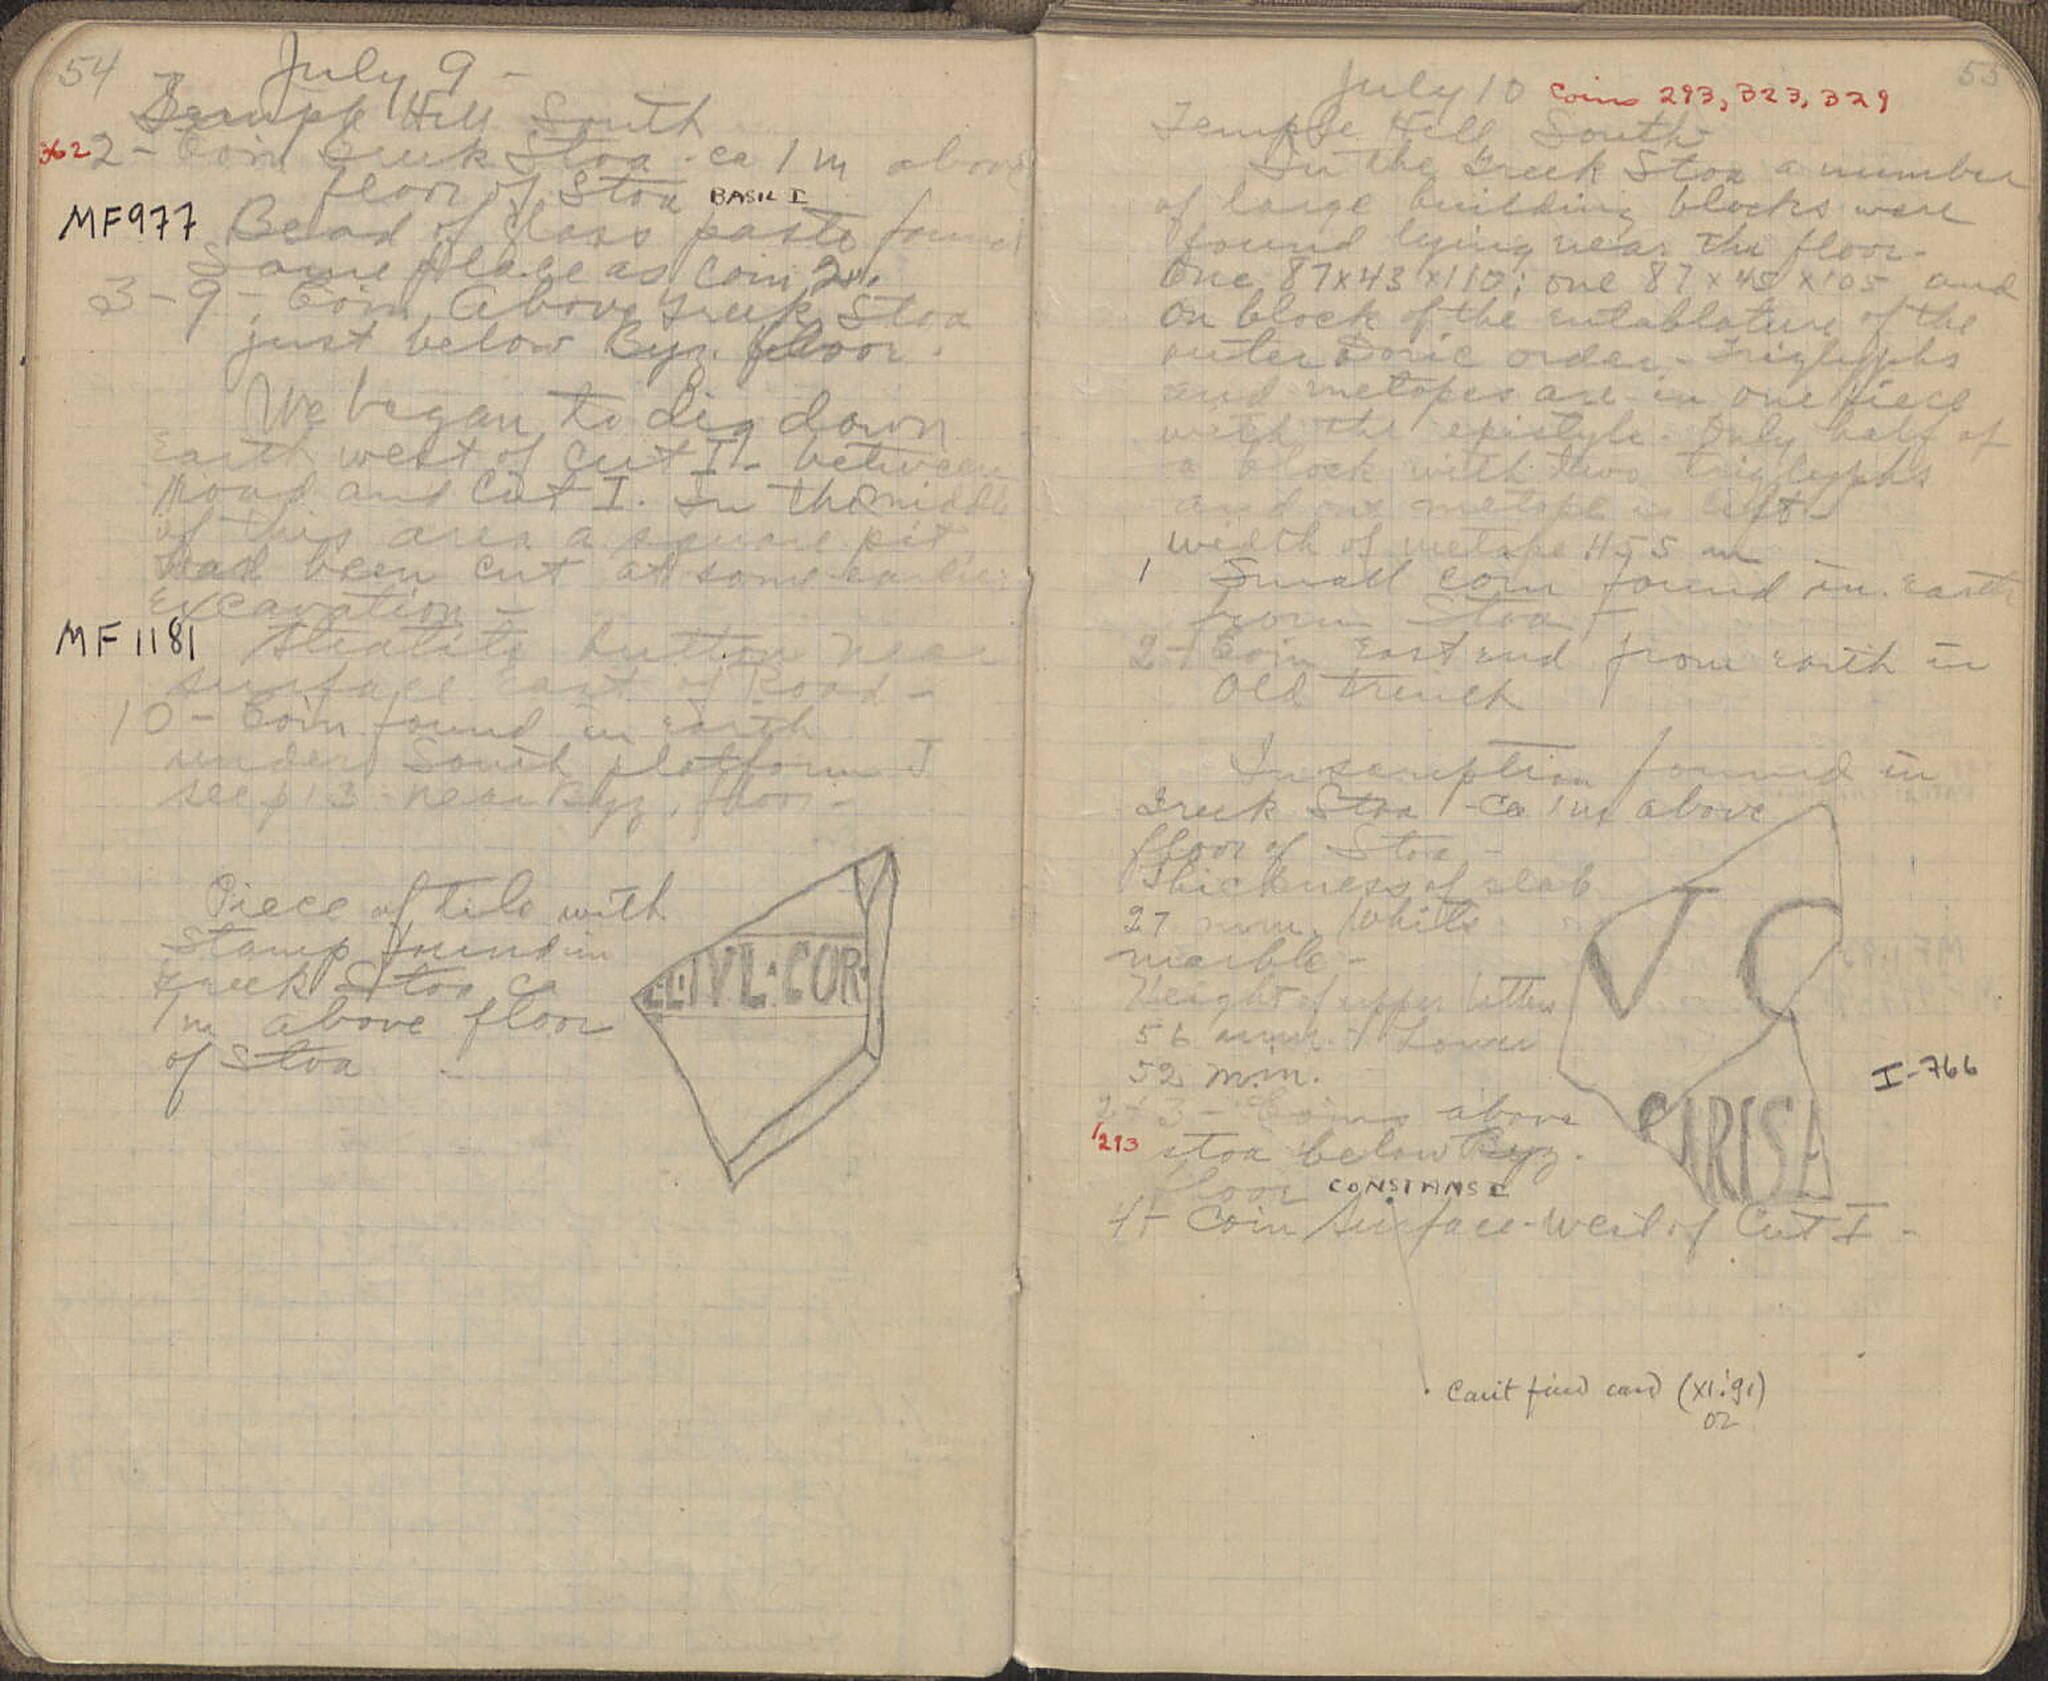 54
July 9 -
Temple Hill South
362 2 - Coin Greek Stoa - ca 1 m above
floor of Stoa BASIL I
MF977 Bead of glass paste found
same place as coin 2.
3 - 9 - Coin above Greek Stoa
just below Byz. floor.
We began to dig down
earth west of Cut I - between
Road and Cut I. In the middle
of this area a square pit
had been cut at some earlier
excavation -
MF 1181 Steatite button near
surface east of Road -
10 - Coin found in earth
under South platform
see p 13 - near Byz. floor -
Piece of tile with
stamp found in
Greek Stoa ca
1 m above floor
of Stoa
L·IVL·COR·
55
July 10 Coins 293, 323, 329
Temple Hill South
In the Greek Stoa a number
of large building blocks were
found lying near the floor.
One 87 x 43 x 110; one 87 x 45 x 105 and
on block of the entablature of the
outer Doric order - Triglyphs
and metopes are in one piece
with the epistyle. Only half of
a block with two triglyphs
and one metope is left -
width of metope .455 m
1 Small coin found in earth
from Stoa -
2 - Coin east end from earth in
old trench
Inscription found in
Greek Stoa - ca 1 m above
floor of Stoa -
Thickness of slab
27 mm. White
marble -
Height of upper letters
56 mm. Lower
52 m.m.
I-766
2 + 3 - Coins above
293 stoa below Byz.
floor CONSTANS I
4 - Coin surface - West of Cut I -
Can't find card (XI:91)
02